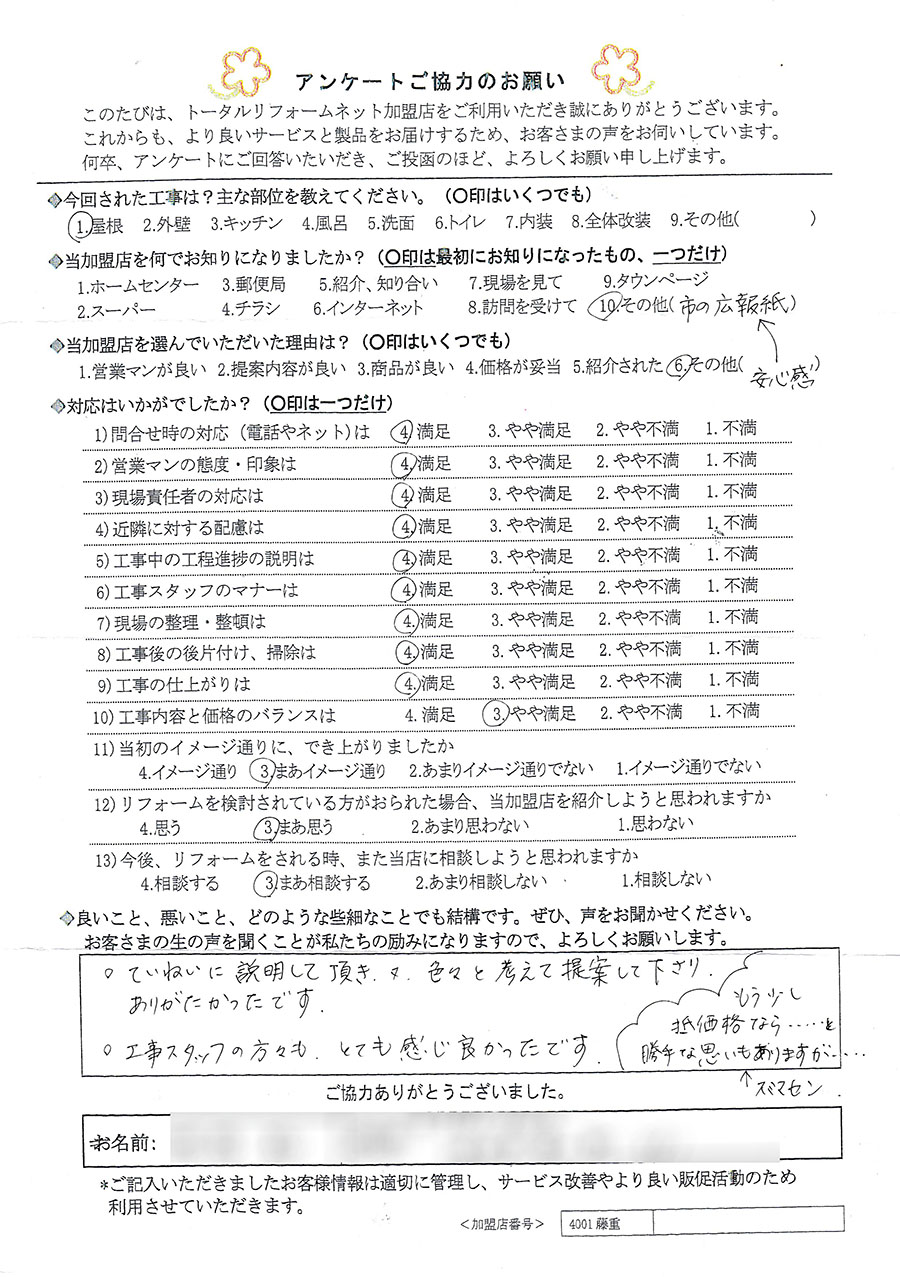 アンケートご協力のお願い
このたびは、トータルリフォームネット加盟店をご利用いただき誠にありがとうございます。
これからも、より良いサービスと製品をお届けするため、お客さまの声をお伺いしています。
何卒、アンケートにご回答いたいだき、ご投函のほど、よろしくお願い申し上げます。
◆今回された工事は？主な部位を教えてください。（〇印はいくつでも）
1.屋根 2.外壁 3.キッチン 4.風呂 5.洗面 6.トイレ 7.内装 8.全体改装 9.その他( )
◆当加盟店を何でお知りになりましたか？（〇印は最初にお知りになったもの、一つだけ）
1.ホームセンター 3.郵便局 5.紹介、知り合い 7.現場を見て 9.タウンページ
2.スーパー 4.チラシ 6.インターネット 8.訪問を受けて 10.その他(市の広報紙)
◆当加盟店を選んでいただいた理由は？（〇印はいくつでも）
1.営業マンが良い 2.提案内容が良い 3.商品が良い 4.価格が妥当 5.紹介された 6.その他( )
安心感
◆対応はいかがでしたか？（〇印は一つだけ）
1)問合せ時の対応（電話やネット)は 4.満足 3.やや満足 2.やや不満 1.不満
2)営業マンの態度・印象は 4.満足 3.やや満足 2.やや不満 1.不満
3)現場責任者の対応は 4.満足 3.やや満足 2.やや不満 1.不満
4)近隣に対する配慮は 4.満足 3.やや満足 2.やや不満 1.不満
5)工事中の工程進捗の説明は 4.満足 3.やや満足 2.やや不満 1.不満
6)工事スタッフのマナーは 4.満足 3.やや満足 2.やや不満 1.不満
7)現場の整理・整頓は 4.満足 3.やや満足 2.やや不満 1.不満
8)工事後の後片付け、掃除は 4.満足 3.やや満足 2.やや不満 1.不満
9)工事の仕上がりは 4.満足 3.やや満足 2.やや不満 1.不満
10)工事内容と価格のバランスは 4.満足 3.やや満足 2.やや不満 1.不満
11)当初のイメージ通りに、でき上がりましたか
4.イメージ通り 3.まあイメージ通り 2.あまりイメージ通りでない 1.イメージ通りでない
12)リフォームを検討されている方がおられた場合、当加盟店を紹介しようと思われますか
4.思う 3.まあ思う 2.あまり思わない 1.思わない
13)今後、リフォームをされる時、また当店に相談しようと思われますか
4.相談する 3.まあ相談する 2.あまり相談しない 1.相談しない
◆良いこと、悪いこと、どのような些細なことでも結構です。ぜひ、声をお聞かせください。
お客さまの生の声を聞くことが私たちの励みになりますので、よろしくお願いします。
○ ていねいに説明して頂き、又、色々と考えて提案して下さり、
ありがたかったです。
○ 工事スタッフの方々も、とても感じ良かったです。
もう少し
低価格なら……と
勝手な思いもありますが……
スミマセン。
ご協力ありがとうございました。
お名前:
*ご記入いただきましたお客様情報は適切に管理し、サービス改善やより良い販促活動のため
利用させていただきます。
＜加盟店番号＞ 4001 藤重